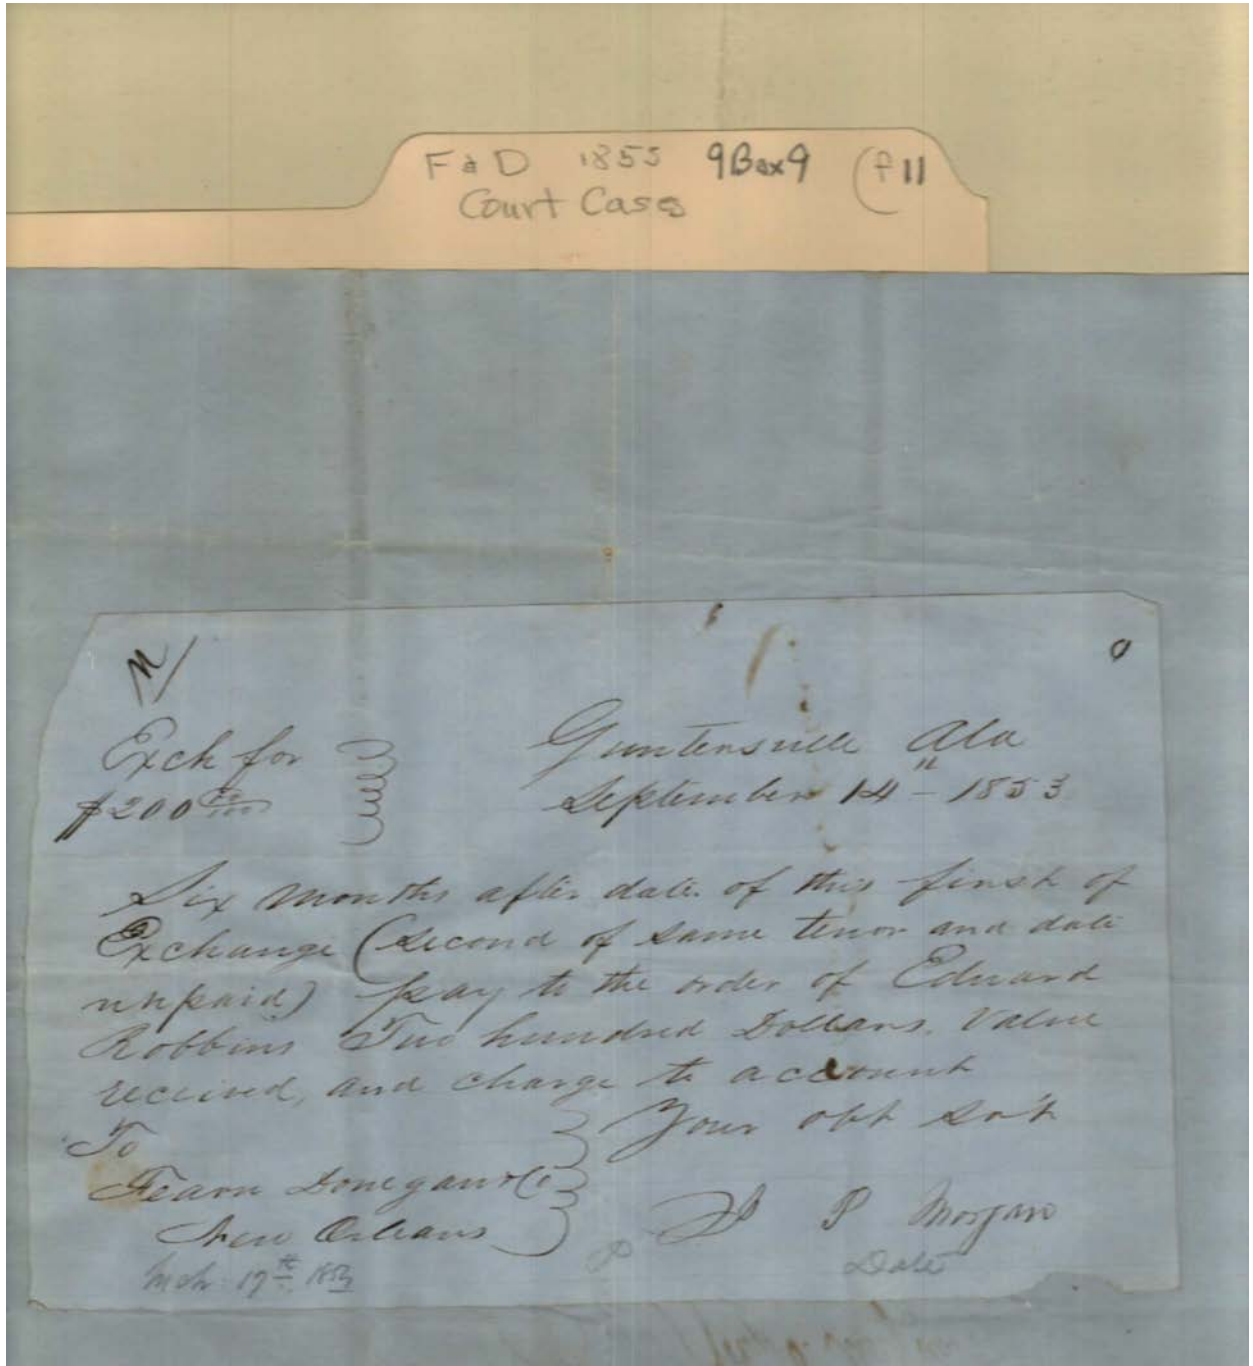 F & D 1855 9Box9 (f 11
Court Cases
N/
Exch for
$200 00/100
Guntersville Ala
September 14" - 1853
Six months after date of this first of
Exchange (second of same tenor and date
unpaid) pay to the order of Edward
Robbins Two hundred Dollars. Value
received, and charge to account
Your obt svt
To
Fearn Donegan & Co
New Orleans
P Morgan
Mch 17th
Date